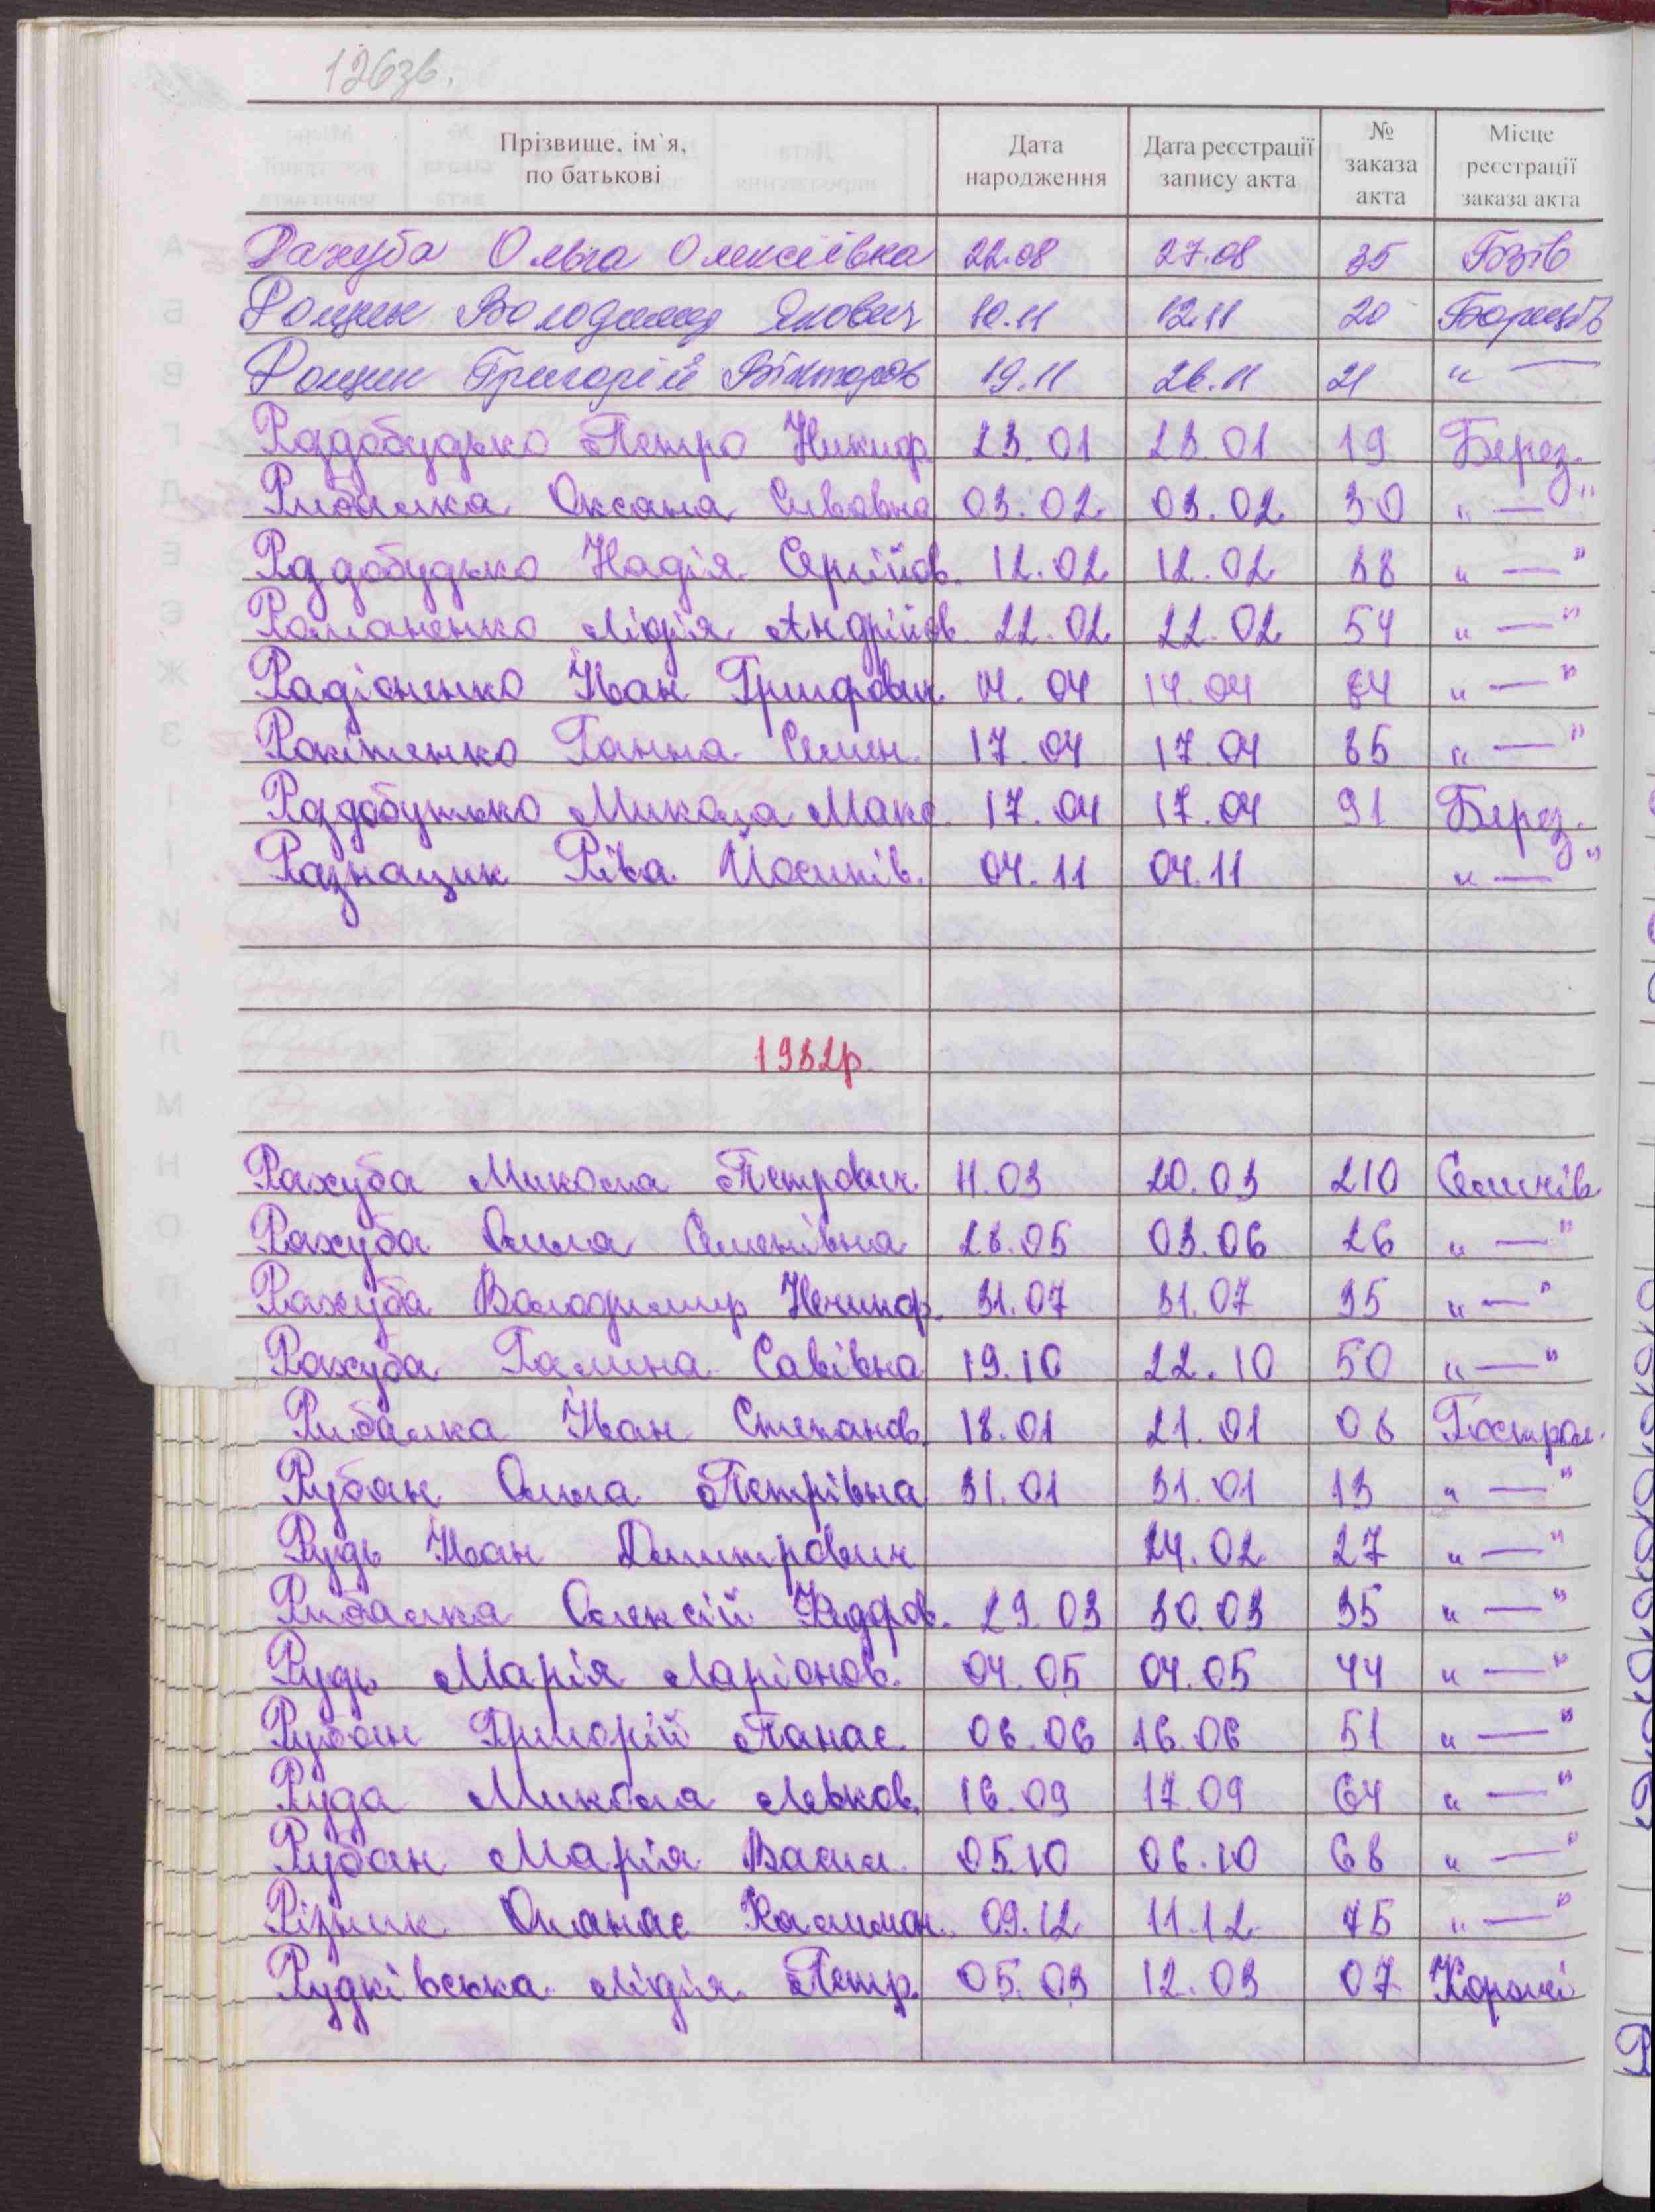 126зв.
Прізвище, ім`я, по батькові | Дата народження | Дата реєстрації запису акта | № заказа акта | Місце реєстрації заказа акта
Рахуба Ольга Олексіївна 22.08 27.08 35 Бзів
Рощин Володимир Якович 10.11 12.11 20
Рощин Григорій Вікторов 19.11 26.11 21 " —
Роздобудько Петро Никиф. 23.01 23.01 19 Берез.
Рибалка Оксана 03.02 03.02 30 " — "
Роздобудько Надія Сергійов. 12.02 12.02 38 " — "
Романенко Лідія Андрійов. 22.02 22.02 54 " — "
Радіоненко Іван 14.04 14.04 84 " — "
Ракітенко Ганна Семен. 17.04 17.04 85 " — "
Роздобутько Микола Макс. 17.04 17.04 91 Берез.
Рознащик Ріва Йосипів. 04.11 04.11 " — "
1932р.
Рахуба Микола Петрович 11.03 20.03 210 Селичів
Рахуба Олила Семенівна 28.05 03.06 26 " — "
Рахуба Володимир Ничипор. 31.07 31.07 35 " — "
Рахуба Галина Савівна 19.10 22.10 50 " — "
Рибалка Іван Степанов. 18.01 21.01 08 Гострол.
Рубан Олила Петрівна 31.01 31.01 13 " — "
Рудь Іван Дмитрович 24.02 27 " — "
Рибалка Олексій Федоров. 29.03 30.03 35 " — "
Рудь Марія Ларіонов. 04.05 04.05 44 " — "
Рубан Григорій Панас. 06.06 16.06 51 " — "
Руда Микола Левков. 16.09 17.09 64 " — "
Рубан Марія Васил. 05.10 06.10 68 " — "
Різник Опанас 09.12 11.12 75 " — "
Рудківська Лідія Петр. 05.03 12.03 07